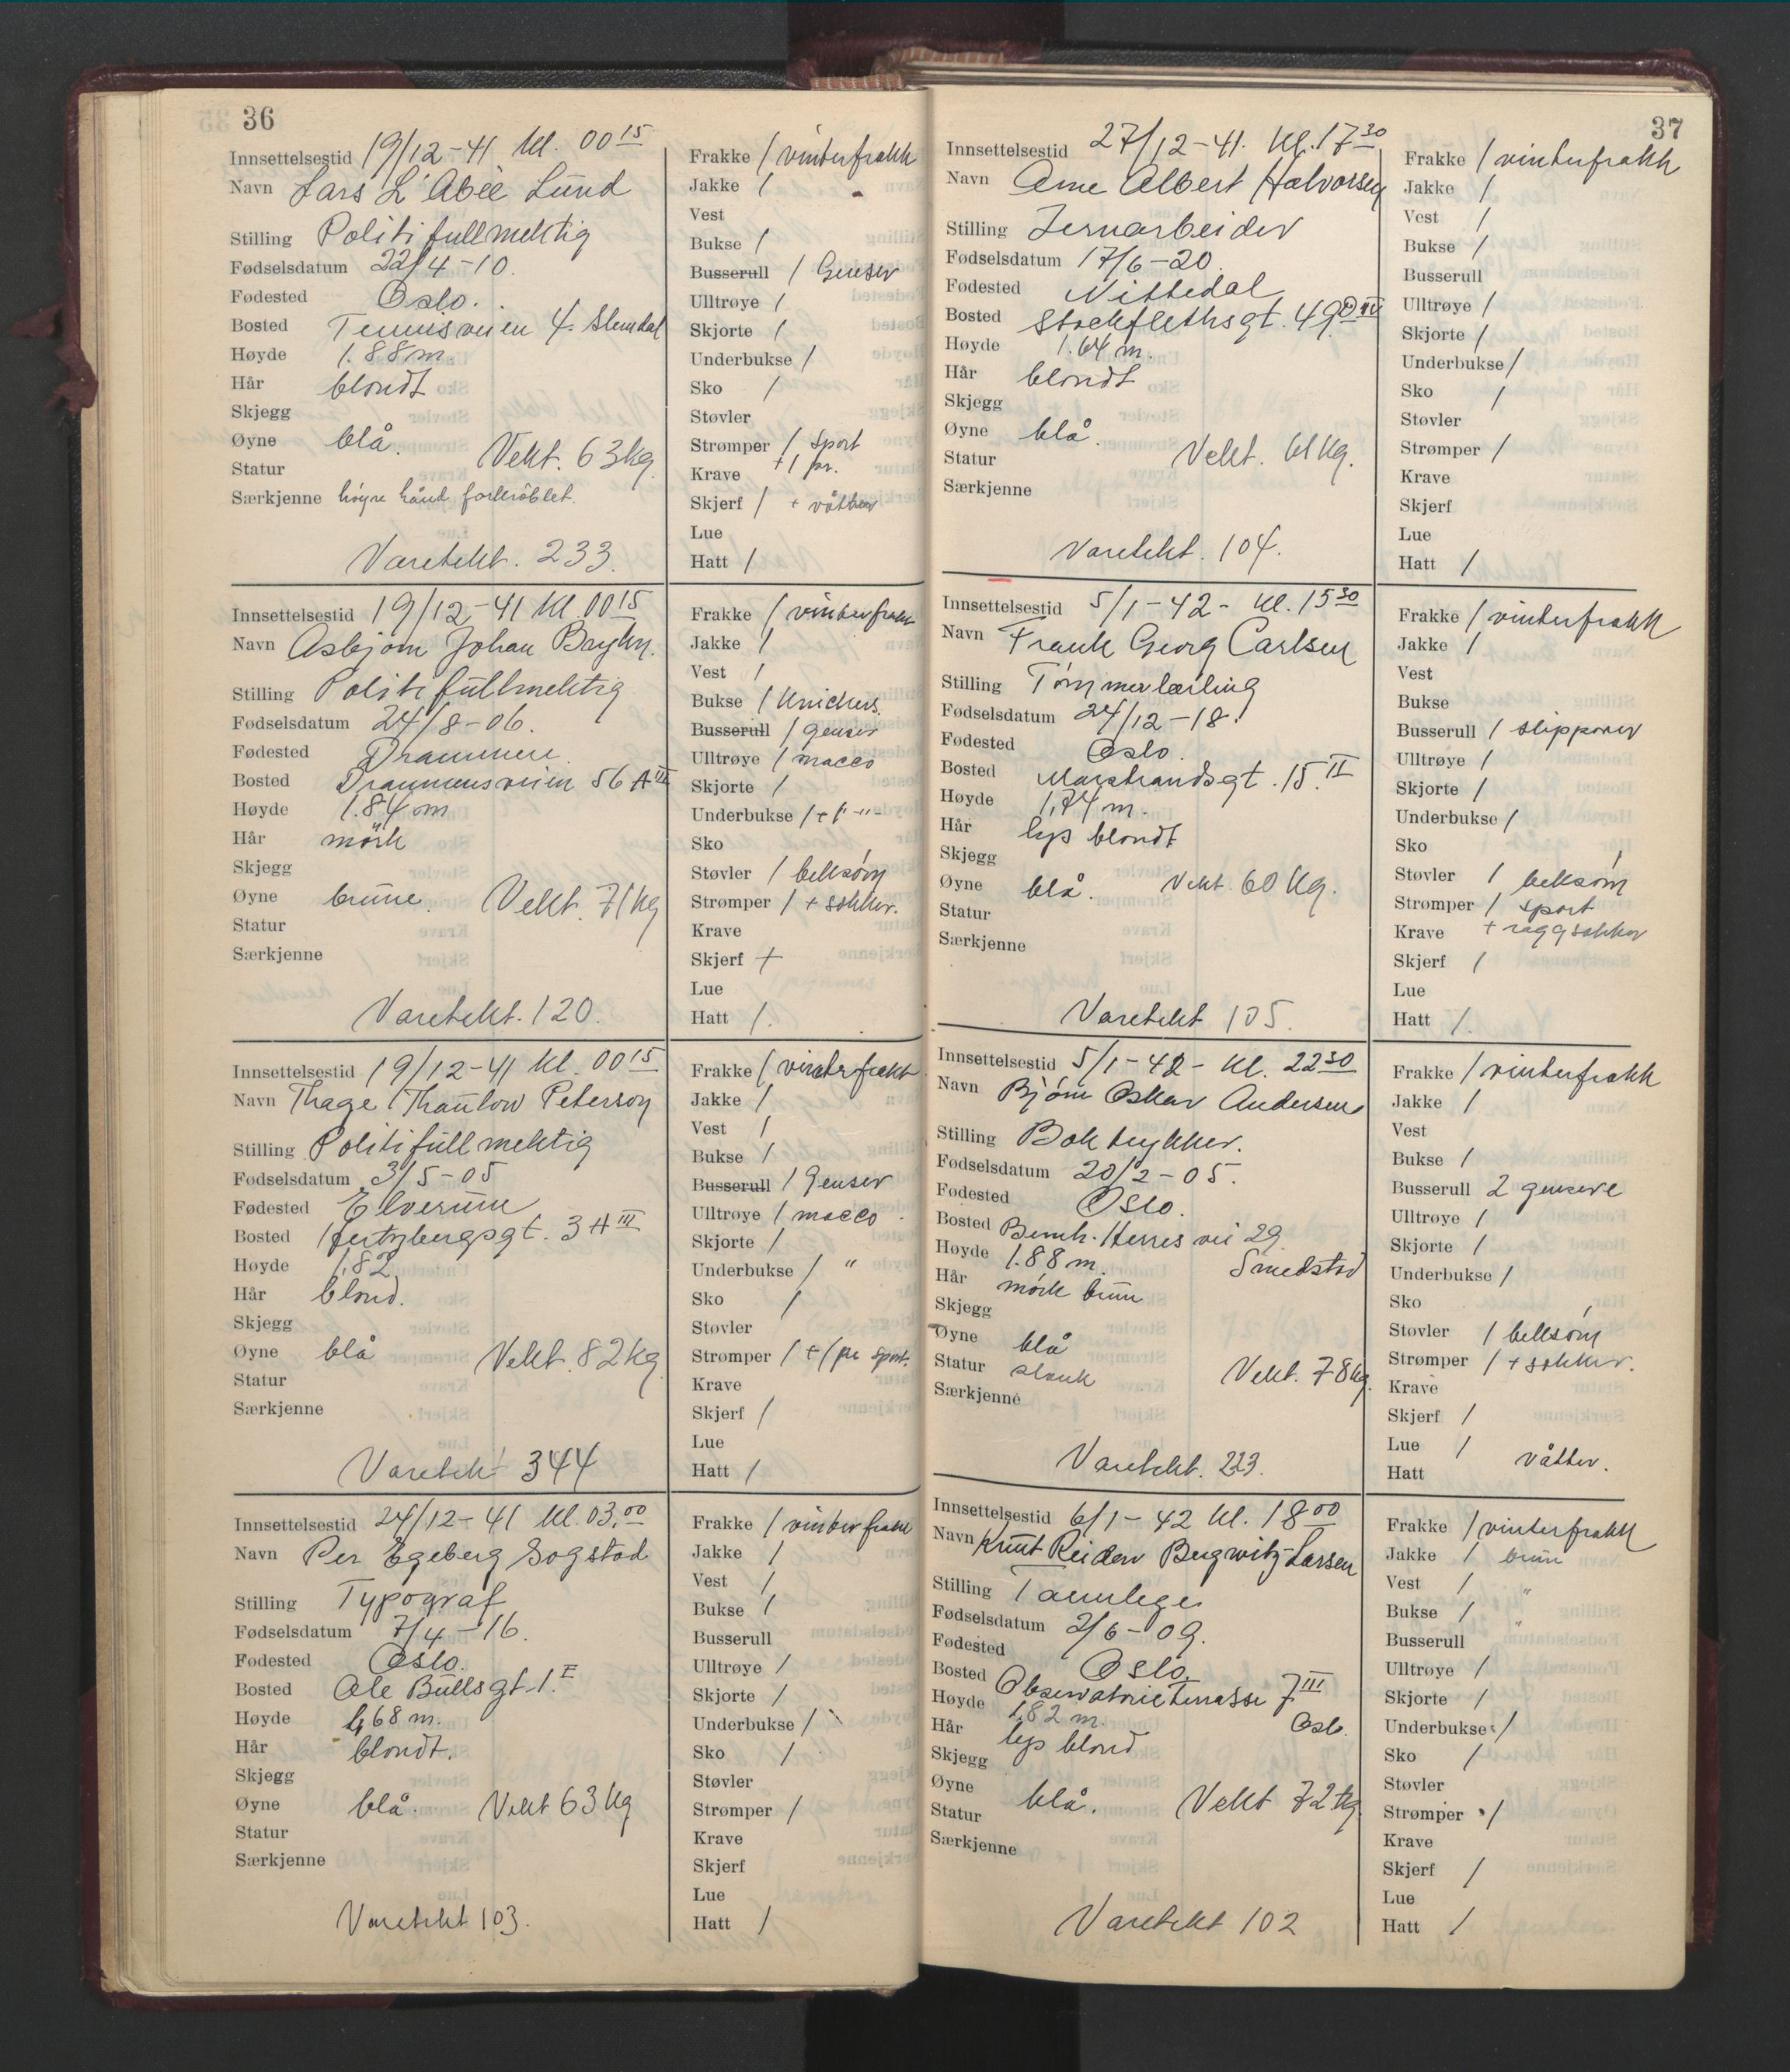 36
Innsettelsestid 19/12-41 Kl. 00 15
Navn Lars L'Abée Lund
Stilling Politifullmektig
Fødselsdatum 22/4-10.
Fødested Oslo.
Bosted Tennisveien 4. Slemdal
Høyde 1.88 m.
Hår blondt
Skjegg
Øyne blå.
Statur Vekt. 63 kg.
Særkjenne høyre hånd forkrøblet.
Varetekt. 233.
Frakke / vinterfrakk
Jakke /
Vest
Bukse /
Busserull / Genser
Ulltrøye /
Skjorte /
Underbukse /
Sko /
Støvler
Strømper / sport
Krave +1 pr.
Skjerf / + våtter
Lue
Hatt /
Innsettelsestid 19/12-41 Kl 00 15
Navn Asbjørn Johan Bryhn.
Stilling Politifullmektig
Fødselsdatum 24/8-06.
Fødested Drammen.
Bosted Drammensveien 56 A III
Høyde 1.84 m
Hår mörk
Skjegg
Øyne brune. Vekt. 71 kg
Statur
Særkjenne
Varetekt. 120.
Frakke / vinterfrakk
Jakke /
Vest /
Bukse / Knickers.
Busserull / genser
Ulltrøye / macco
Skjorte /
Underbukse / +1 -"-
Sko
Støvler / beksöm
Strømper / + sokker.
Krave
Skjerf +
Lue
Hatt /.
Innsettelsestid 19/12-41 Kl. 00 15
Navn Thage Thaulow Peterson
Stilling Politifullmektig
Fødselsdatum 3/5-05
Fødested Elverum
Bosted Hertzbergsgt. 3 A III
Høyde 1,82
Hår blond.
Skjegg
Øyne blå Vekt. 82 kg
Statur
Særkjenne
Varetekt 344
Frakke / vinterfrakk
Jakke /
Vest /
Bukse /
Busserull / Genser
Ulltrøye / macco
Skjorte /
Underbukse / "
Sko /
Støvler
Strømper / +1 pr sport.
Krave
Skjerf /
Lue
Hatt /
Innsettelsestid 24/12-41 Kl. 03.00
Navn Per Egeberg Sogstad
Stilling Typograf
Fødselsdatum 7/4-16.
Fødested Oslo.
Bosted Ole Bullsgt. 1. I
Høyde 1,68 m.
Hår blondt.
Skjegg
Øyne blå. Vekt 63 kg
Statur
Særkjenne
Varetekt 103.
Frakke / vinterfrakk
Jakke /
Vest /
Bukse /
Busserull
Ulltrøye /
Skjorte /
Underbukse /
Sko /
Støvler
Strømper /
Krave
Skjerf
Lue
Hatt /
37
Innsettelsestid 27/12-41. Kl. 17 30
Navn Arne Albert Halvorsen
Stilling Jernarbeider
Fødselsdatum 17/6-20.
Fødested Nittedal
Bosted Stockflethsgt. 49 D IV
Høyde 1.64 m.
Hår blondt
Skjegg
Øyne blå.
Statur Vekt. 61 kg.
Særkjenne
Varetekt. 104.
Frakke / vinterfrakk
Jakke /
Vest /
Bukse /
Busserull
Ulltrøye /
Skjorte /
Underbukse /
Sko /
Støvler
Strømper /
Krave
Skjerf
Lue
Hatt /
Innsettelsestid 5/1-42- Kl. 15 30
Navn Frank Georg Carlsen
Stilling Tømmerlærling
Fødselsdatum 24/12-18.
Fødested Oslo.
Bosted Marstrandsgt. 15. II
Høyde 1,74 m.
Hår lys blondt
Skjegg
Øyne blå. Vekt. 60 Kg.
Statur
Særkjenne
Varetekt 105.
Frakke / vinterfrakk
Jakke /
Vest
Bukse
Busserull / slippover
Ulltrøye /
Skjorte /
Underbukse /
Sko
Støvler / beksøm
Strømper / sport
Krave + raggsokker
Skjerf /
Lue
Hatt /.
Innsettelsestid 5/1-42- Kl. 22 30
Navn Bjørn Oskar Andersen
Stilling Boktrykker.
Fødselsdatum 20/2-05.
Fødested Oslo.
Bosted Bernh. Herres vei 29.
Høyde 1.88 m. Smedstad
Hår mørk brun
Skjegg
Øyne blå
Statur slank Vekt. 78 kg.
Særkjenne
Varetekt. 223.
Frakke / vinterfrakk
Jakke /
Vest
Bukse /
Busserull 2 gensere
Ulltrøye /
Skjorte /
Underbukse /
Sko
Støvler / beksøm
Strømper / + sokker.
Krave
Skjerf /
Lue /
Hatt våtter.
Innsettelsestid 6/1-42 Kl. 18 00
Navn Knut Reidar Bugwitz-Larsen
Stilling Tannlege
Fødselsdatum 2/6-09.
Fødested Oslo.
Bosted Observatorieterrasse 7 III
Høyde 1,82 m. Oslo.
Hår lys blond
Skjegg
Øyne blå. Vekt 72 kg
Statur
Særkjenne
Varetekt 102
Frakke / vinterfrakk
Jakke / brun
Vest / "
Bukse / "
Busserull
Ulltrøye /
Skjorte /
Underbukse /
Sko /
Støvler
Strømper /
Krave
Skjerf /
Lue
Hatt /